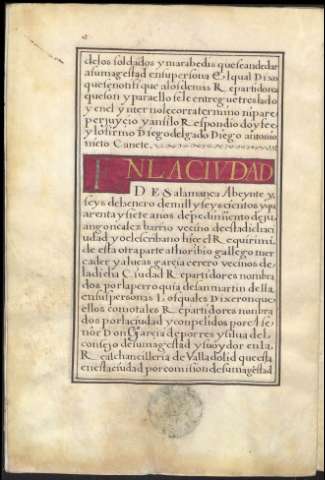 delos soldados y marabedis que se an de dar
a su magestad en su persona El qual Dixo
que se notifique a los demas Repartidores
que son y para ello se le entregue traslado
y en el ynter no le corra termino ni pare
perjuycio y an si lo Respondio doy fee
y lo firmo Diego delgado Diego antonio
nieto Canete.
EN LA CIVDAD
DE Salamanca A beynte y
seys de henero de mill y seys cientos y qua
renta y siete años de pedimiento de ju
an gonçalez barrio vecino de esta dicha ci
udad yo el escribano hiçe el Requirimi.
de esta otra parte a thoribio gallego mer
cader y a lucas garcia cerero vecinos de
la dicha Ciudad Repartidores nombra
dos por la perroquia de san martin della
en sus personas Los quales Dixeron que
ellos como tales Repartidores nombra
dos por la ciudad y conpelidos por el se
ñor Don Garcia de porres y silua del
consejo de su magestad y su oydor en la
Real chancilleria de Valladolid que esta
en esta ciudad por comision de su magestad